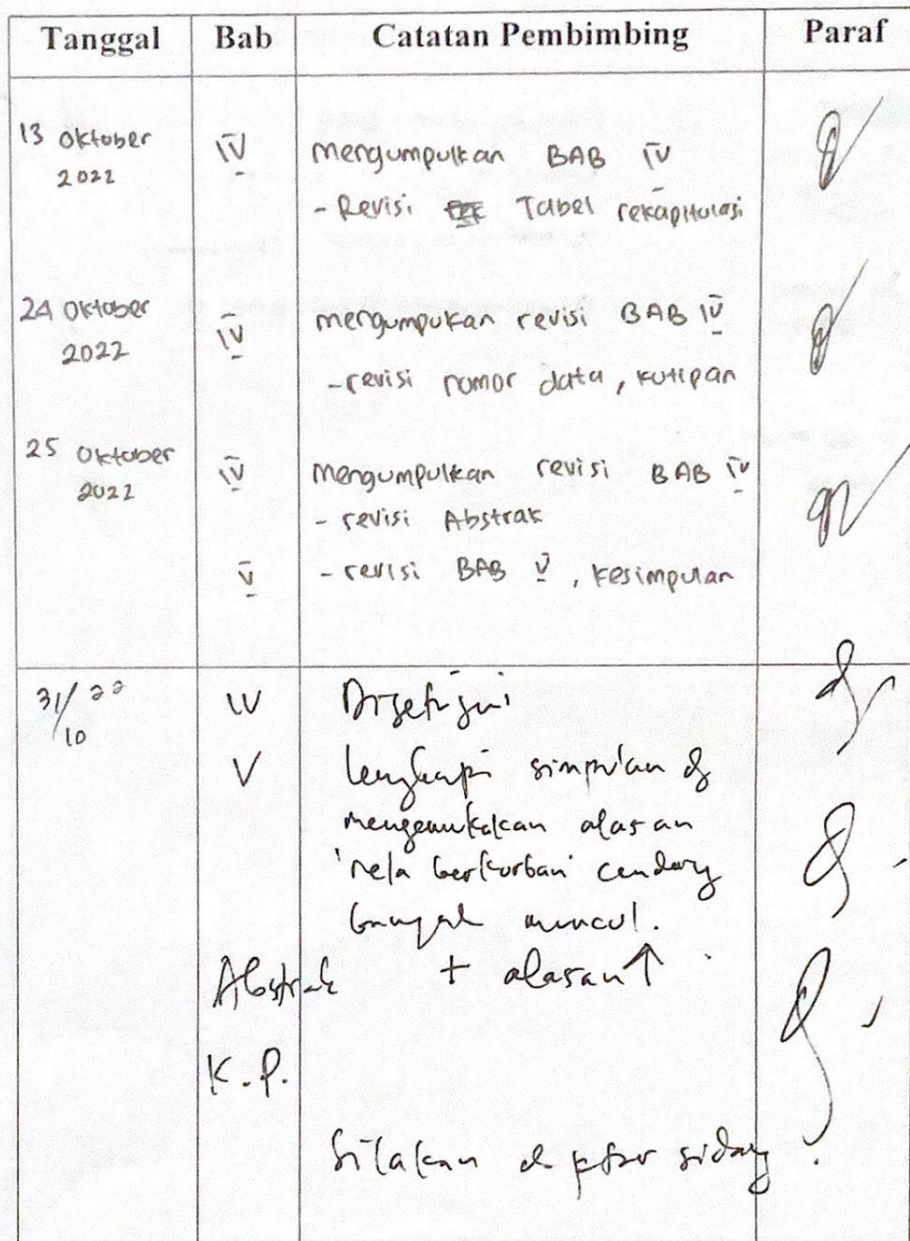 Tanggal Bab Catatan Pembimbing Paraf
13 Oktober IV mengumpulkan BAB IV
2022 - Revisi Tabel rekapitulasi
24 Oktober IV mengumpukan revisi BAB IV
2022 - revisi nomor data, kutipan
25 Oktober IV mengumpulkan revisi BAB IV
2022 - revisi Abstrak
V - revisi BAB V, kesimpulan
31/10 22 IV Disetujui
V lengkapi simpulan dg
mengemukakan alasan
'rela berkorban' cendrung
banyak muncul.
Abstrak + alasan ↑
K.P.
Silakan sidang